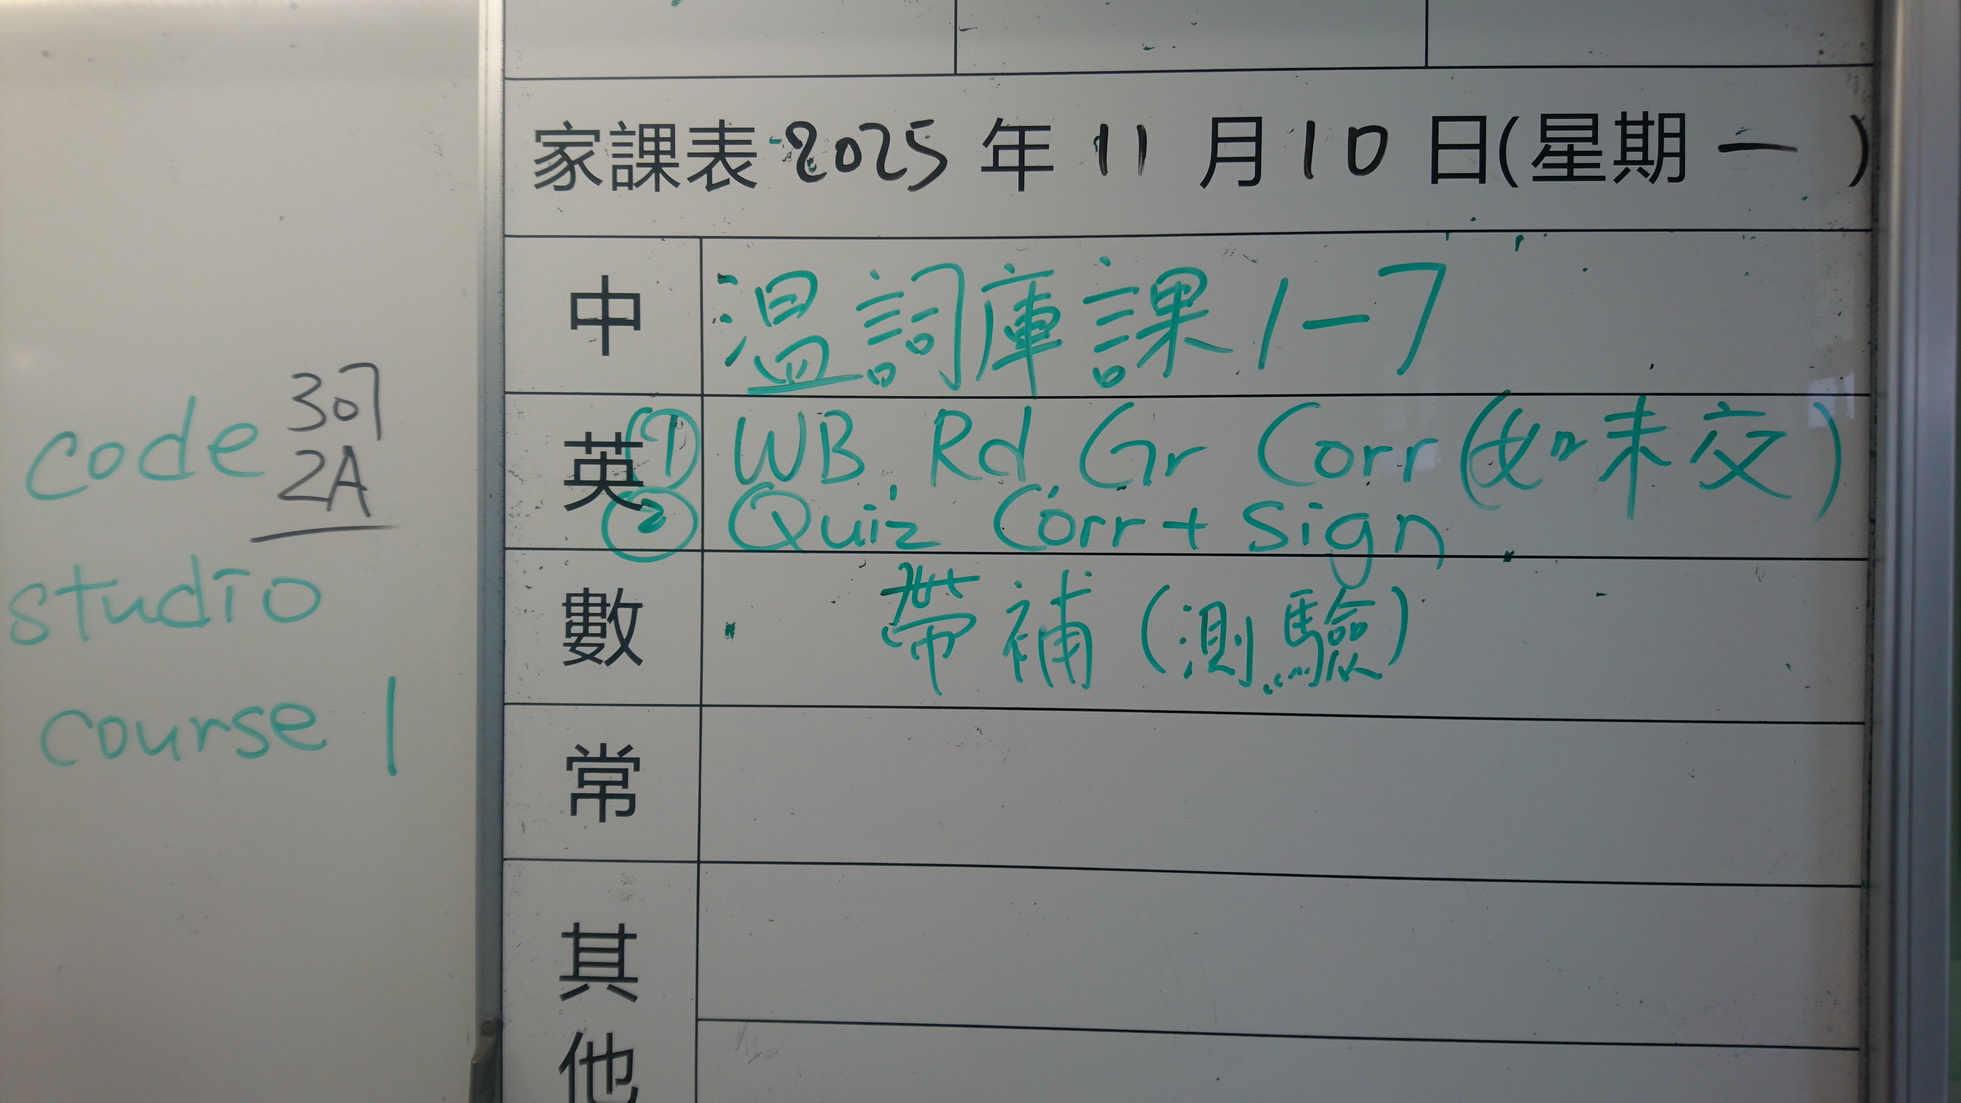 家課表 2025 年 11 月 10 日(星期 一 )
中 温詞庫課1-7
英 ① WB Rd Gr Corr (如未交)
② Quiz Corr + Sign
數 帶補 (測驗)
常
其
他
code 307
2A
studio
course 1